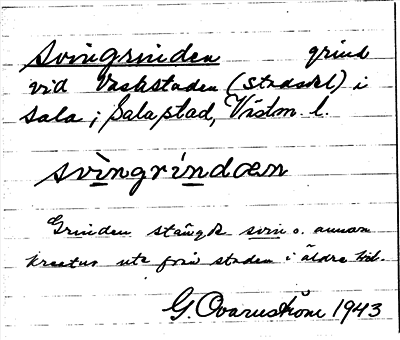 Svingrinden grind
vid Väskstaden (stadsdel) i
Sala; Sala stad, Västm. l.
svìngríndæn
Grinden stängde svin o. annan
kreatur ute från staden i äldre tid.
G. Ovarnström 1943